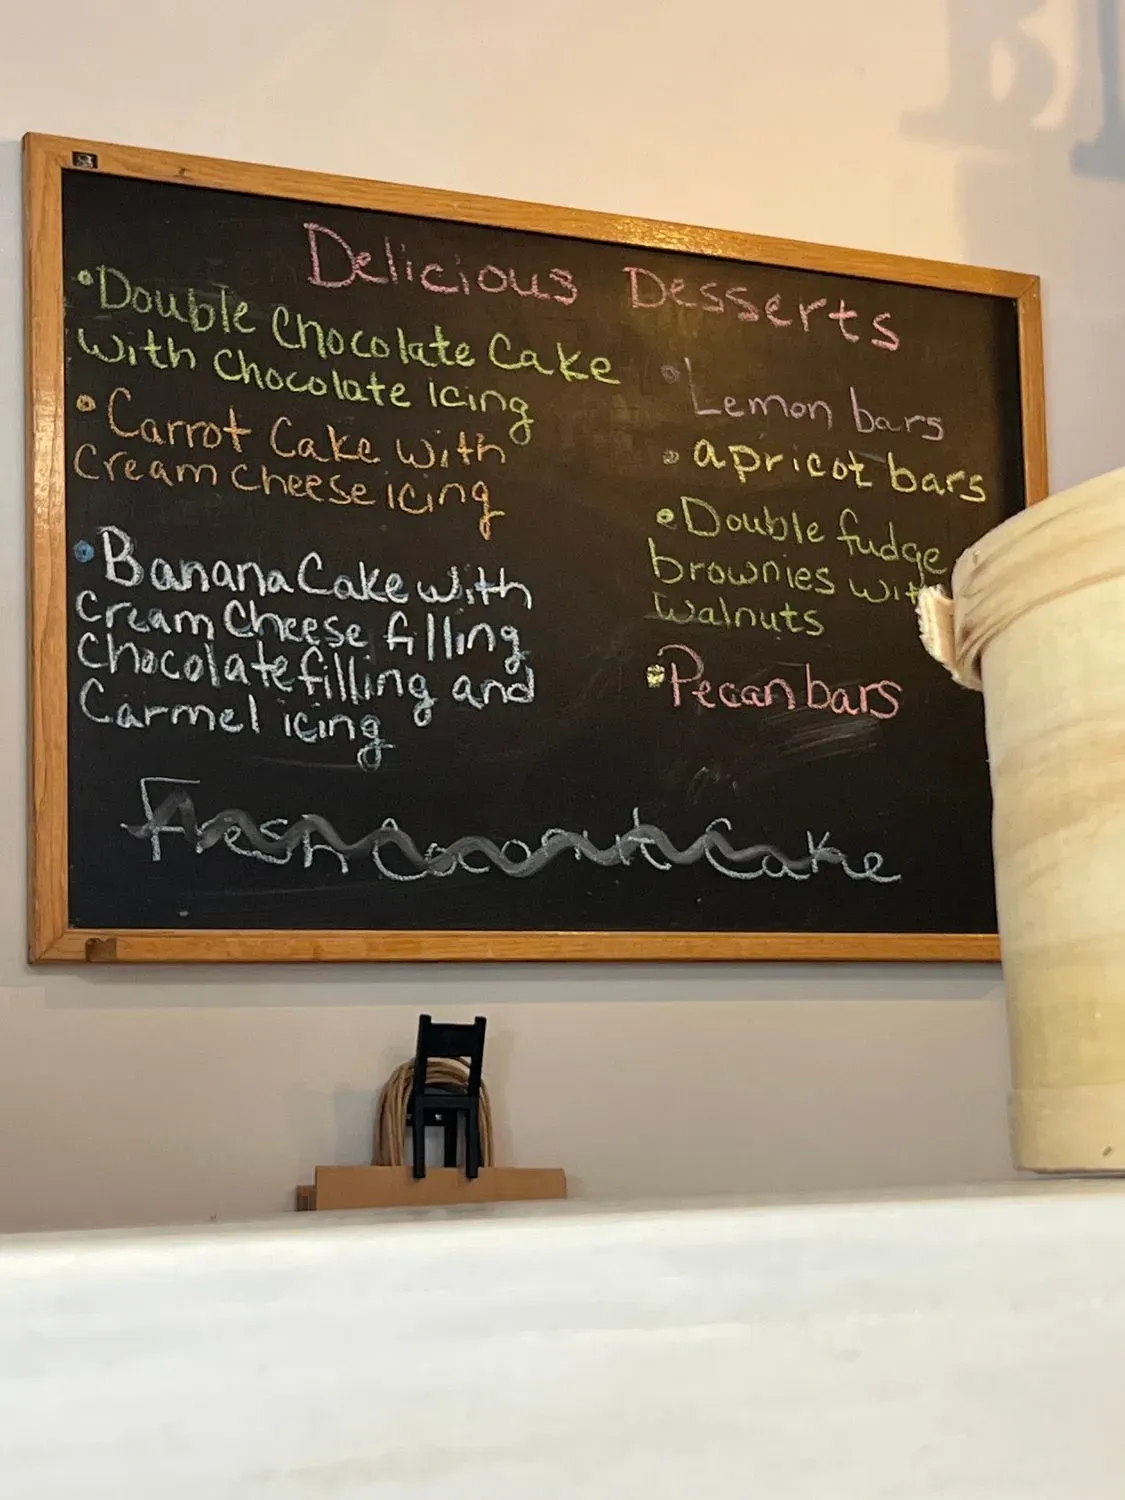 Delicious Desserts
•Double Chocolate Cake
with Chocolate icing
•Carrot Cake with
Cream Cheese icing
•Banana Cake with
cream Cheese filling
chocolate filling and
Carmel icing
•Lemon bars
•apricot bars
•Double fudge
brownies with
walnuts
•Pecan bars
Fresh Coconut Cake